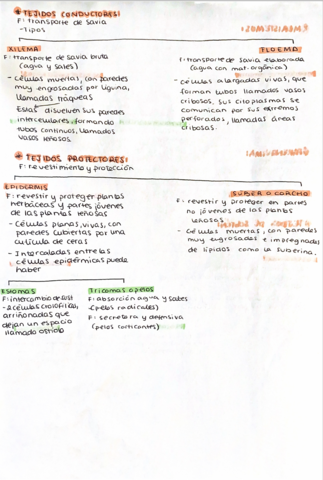 * TEJIDOS CONDUCTORES:
F: transporte de savia
-Tipos
XILEMA
F: transporte de savia bruta
(agua y sales)
- Células muertas, con paredes
muy engrosadas por liguina,
llamadas tráqueas
disuelven sus paredes
intercelulares, formando
tubos continuos, llamados
vasos leñosos.
FLOEMA
F: transporte de savia elaborada
(agua con mat. orgánica)
- células alargadas vivas, que
forman tubos llamados vasos
cribosos, sus citoplasmas se
comunican por sus extremos
perforados, llamadas áreas
cribosas.
* TEJIDOS PROTECTORES:
F: revestimiento y protección
EPIDERMIS
F: revestir y proteger plantas
herbáceas y partes jóvenes
de las plantas leñosas
- Células planas, vivas, con
paredes cubiertas por una
cutícula de ceras
- Intercaladas entre las
células epidérmicas puede
haber
SÚBER O CORCHO
F: revestir y proteger en partes
no jóvenes de las plantas
leñosas.
- Células muertas, con paredes
muy engrosadas e impregnadas
de lípidos como la suberina.
Estomas
F: intercambio de gases
arriñonadas que
dejan un espacio
llamado ostiolo
Tricomas o pelos
F: absorción agua y sales
(pelos radicales)
F: secretora y defensiva
(pelos urticantes)